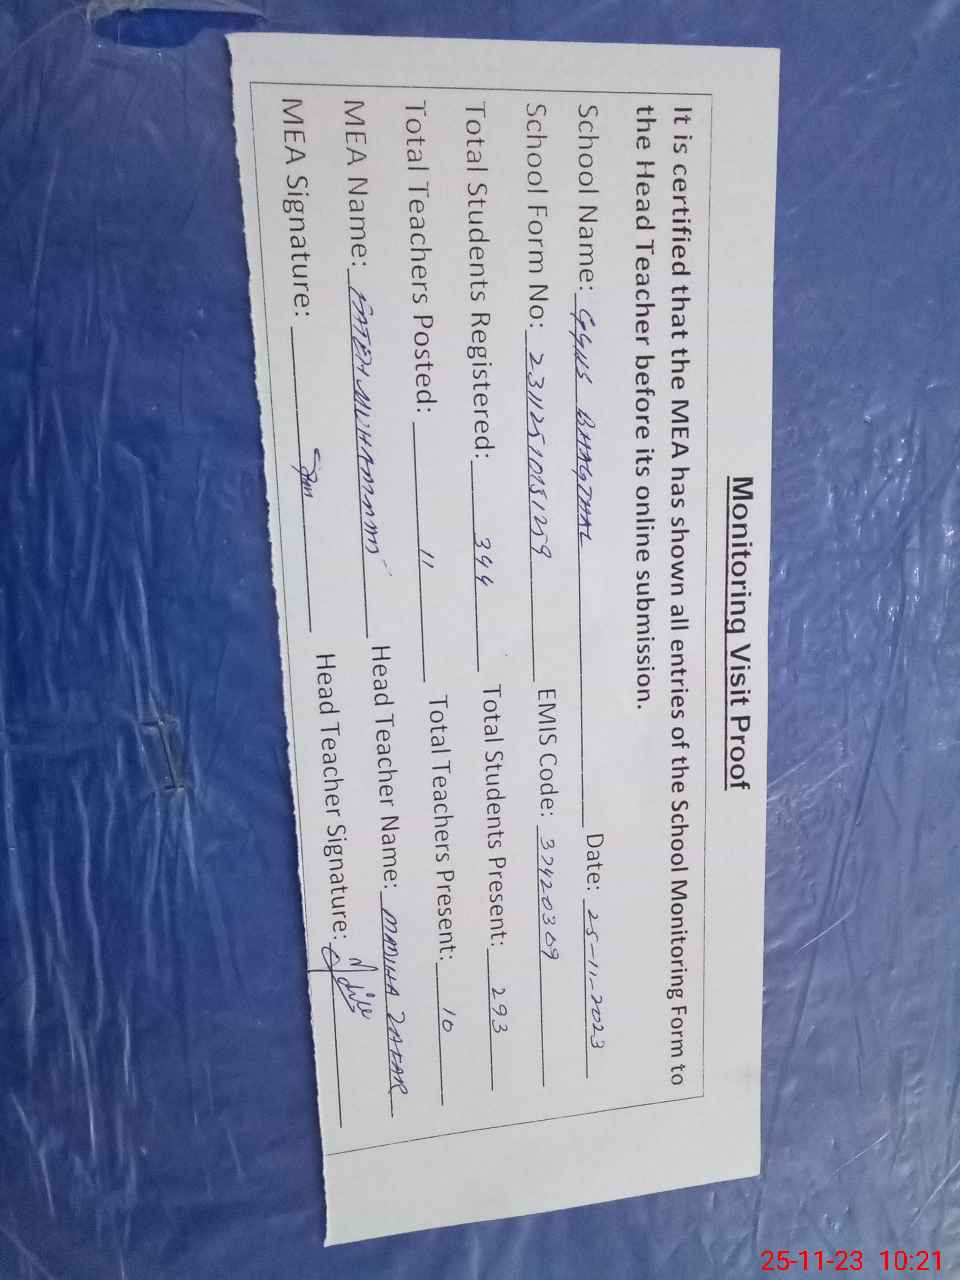 Monitoring Visit Proof
It is certified that the MEA has shown all entries of the School Monitoring Form to
the Head Teacher before its online submission.
School Name: GGHS BHAGTHAL Date: 25-11-2023
School Form No: 231125101S1259 EMIS Code: 37420309
Total Students Registered: 394 Total Students Present: 293
Total Teachers Posted: 11 Total Teachers Present: 10
MEA Name: FATEH MUHAMMAD Head Teacher Name: MADIHA ZAFAR
MEA Signature: Head Teacher Signature:
25-11-23 10:21